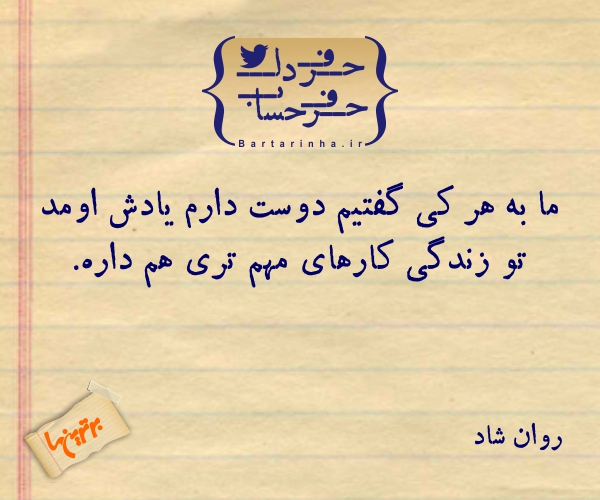 حرف دل
حرف حساب
Bartarinha.ir
ما به هر کی گفتیم دوست دارم یادش اومد
تو زندگی کارهای مهم تری هم داره.
روان شاد
برترین‌ها